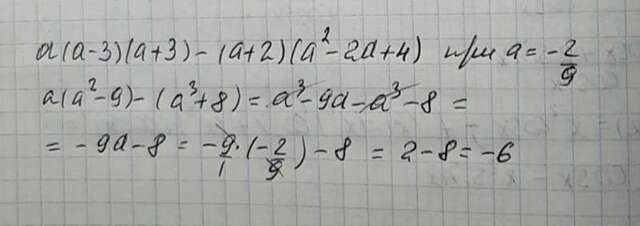 a(a-3)(a+3) - (a+2)(a²-2a+4) при a = -2/9
a(a²-9) - (a³+8) = a³-9a-a³-8 =
= -9a-8 = -9/1·(-2/9)-8 = 2-8 = -6